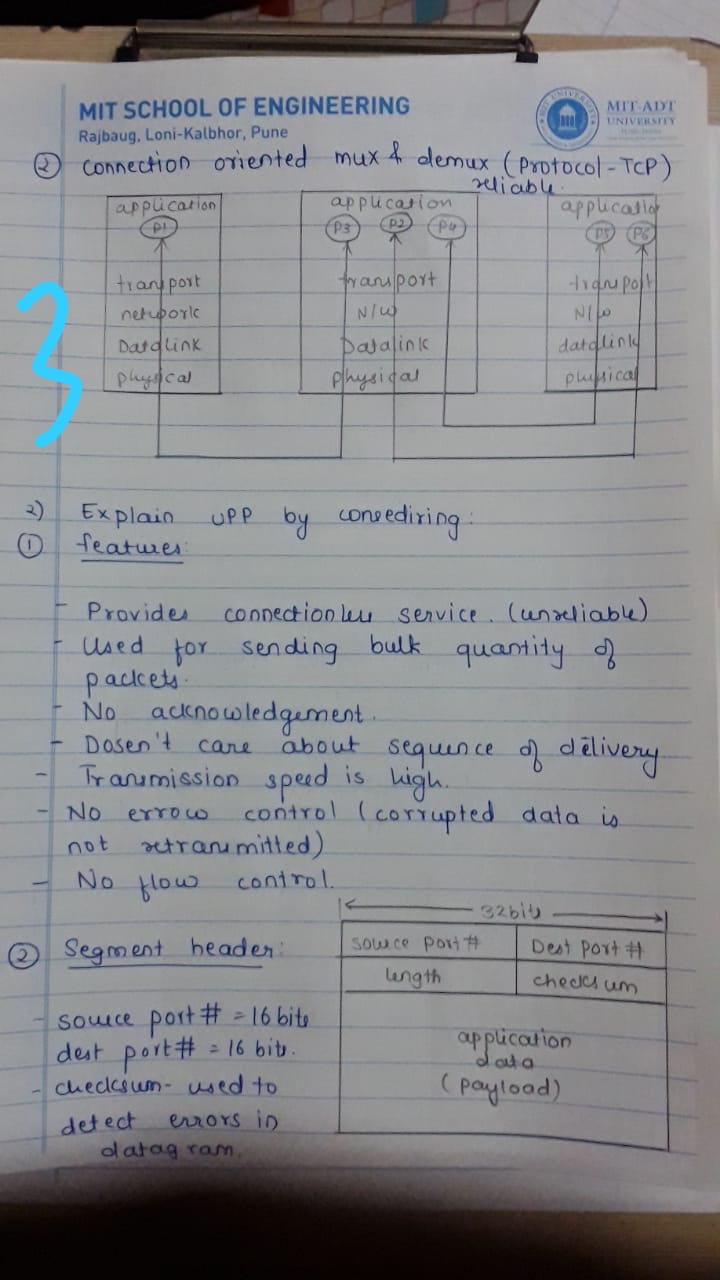 MIT SCHOOL OF ENGINEERING
Rajbaug, Loni-Kalbhor, Pune
MIT-ADT
UNIVERSITY
② connection oriented mux & demux (Protocol-TCP)
reliable.
application application application
P1 P3 P2 P4 P5 P6
transport transport transport
network N/W N/W
Datalink Datalink datalink
physical physical physical
3
2) Explain UPP by consediring:
① features:
- Provides connectionless service. (unreliable)
- Used for sending bulk quantity of
packets.
- No acknowledgement.
- Dosen't care about sequence of delivery
- Transmission speed is high.
- No errow control (corrupted data is
not retransmitted)
- No flow control.
32bits
② Segment header:
source port# Dest port #
length checksum
application
data
(payload)
- source port# = 16 bits
dest port# = 16 bits.
- checksum- used to
detect errors in
datagram.